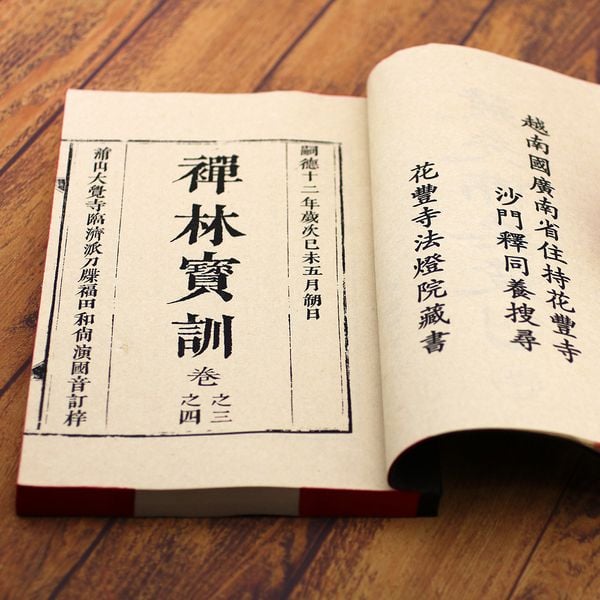 越南國廣南省住持花豐寺
沙門釋同養搜尋
花豐寺法燈院藏書
嗣德十二年歲次己未五月朔日
禪林寶訓
卷
之三
之四
莆山大覺寺臨濟派刀牒福田和尙演國音訂梓